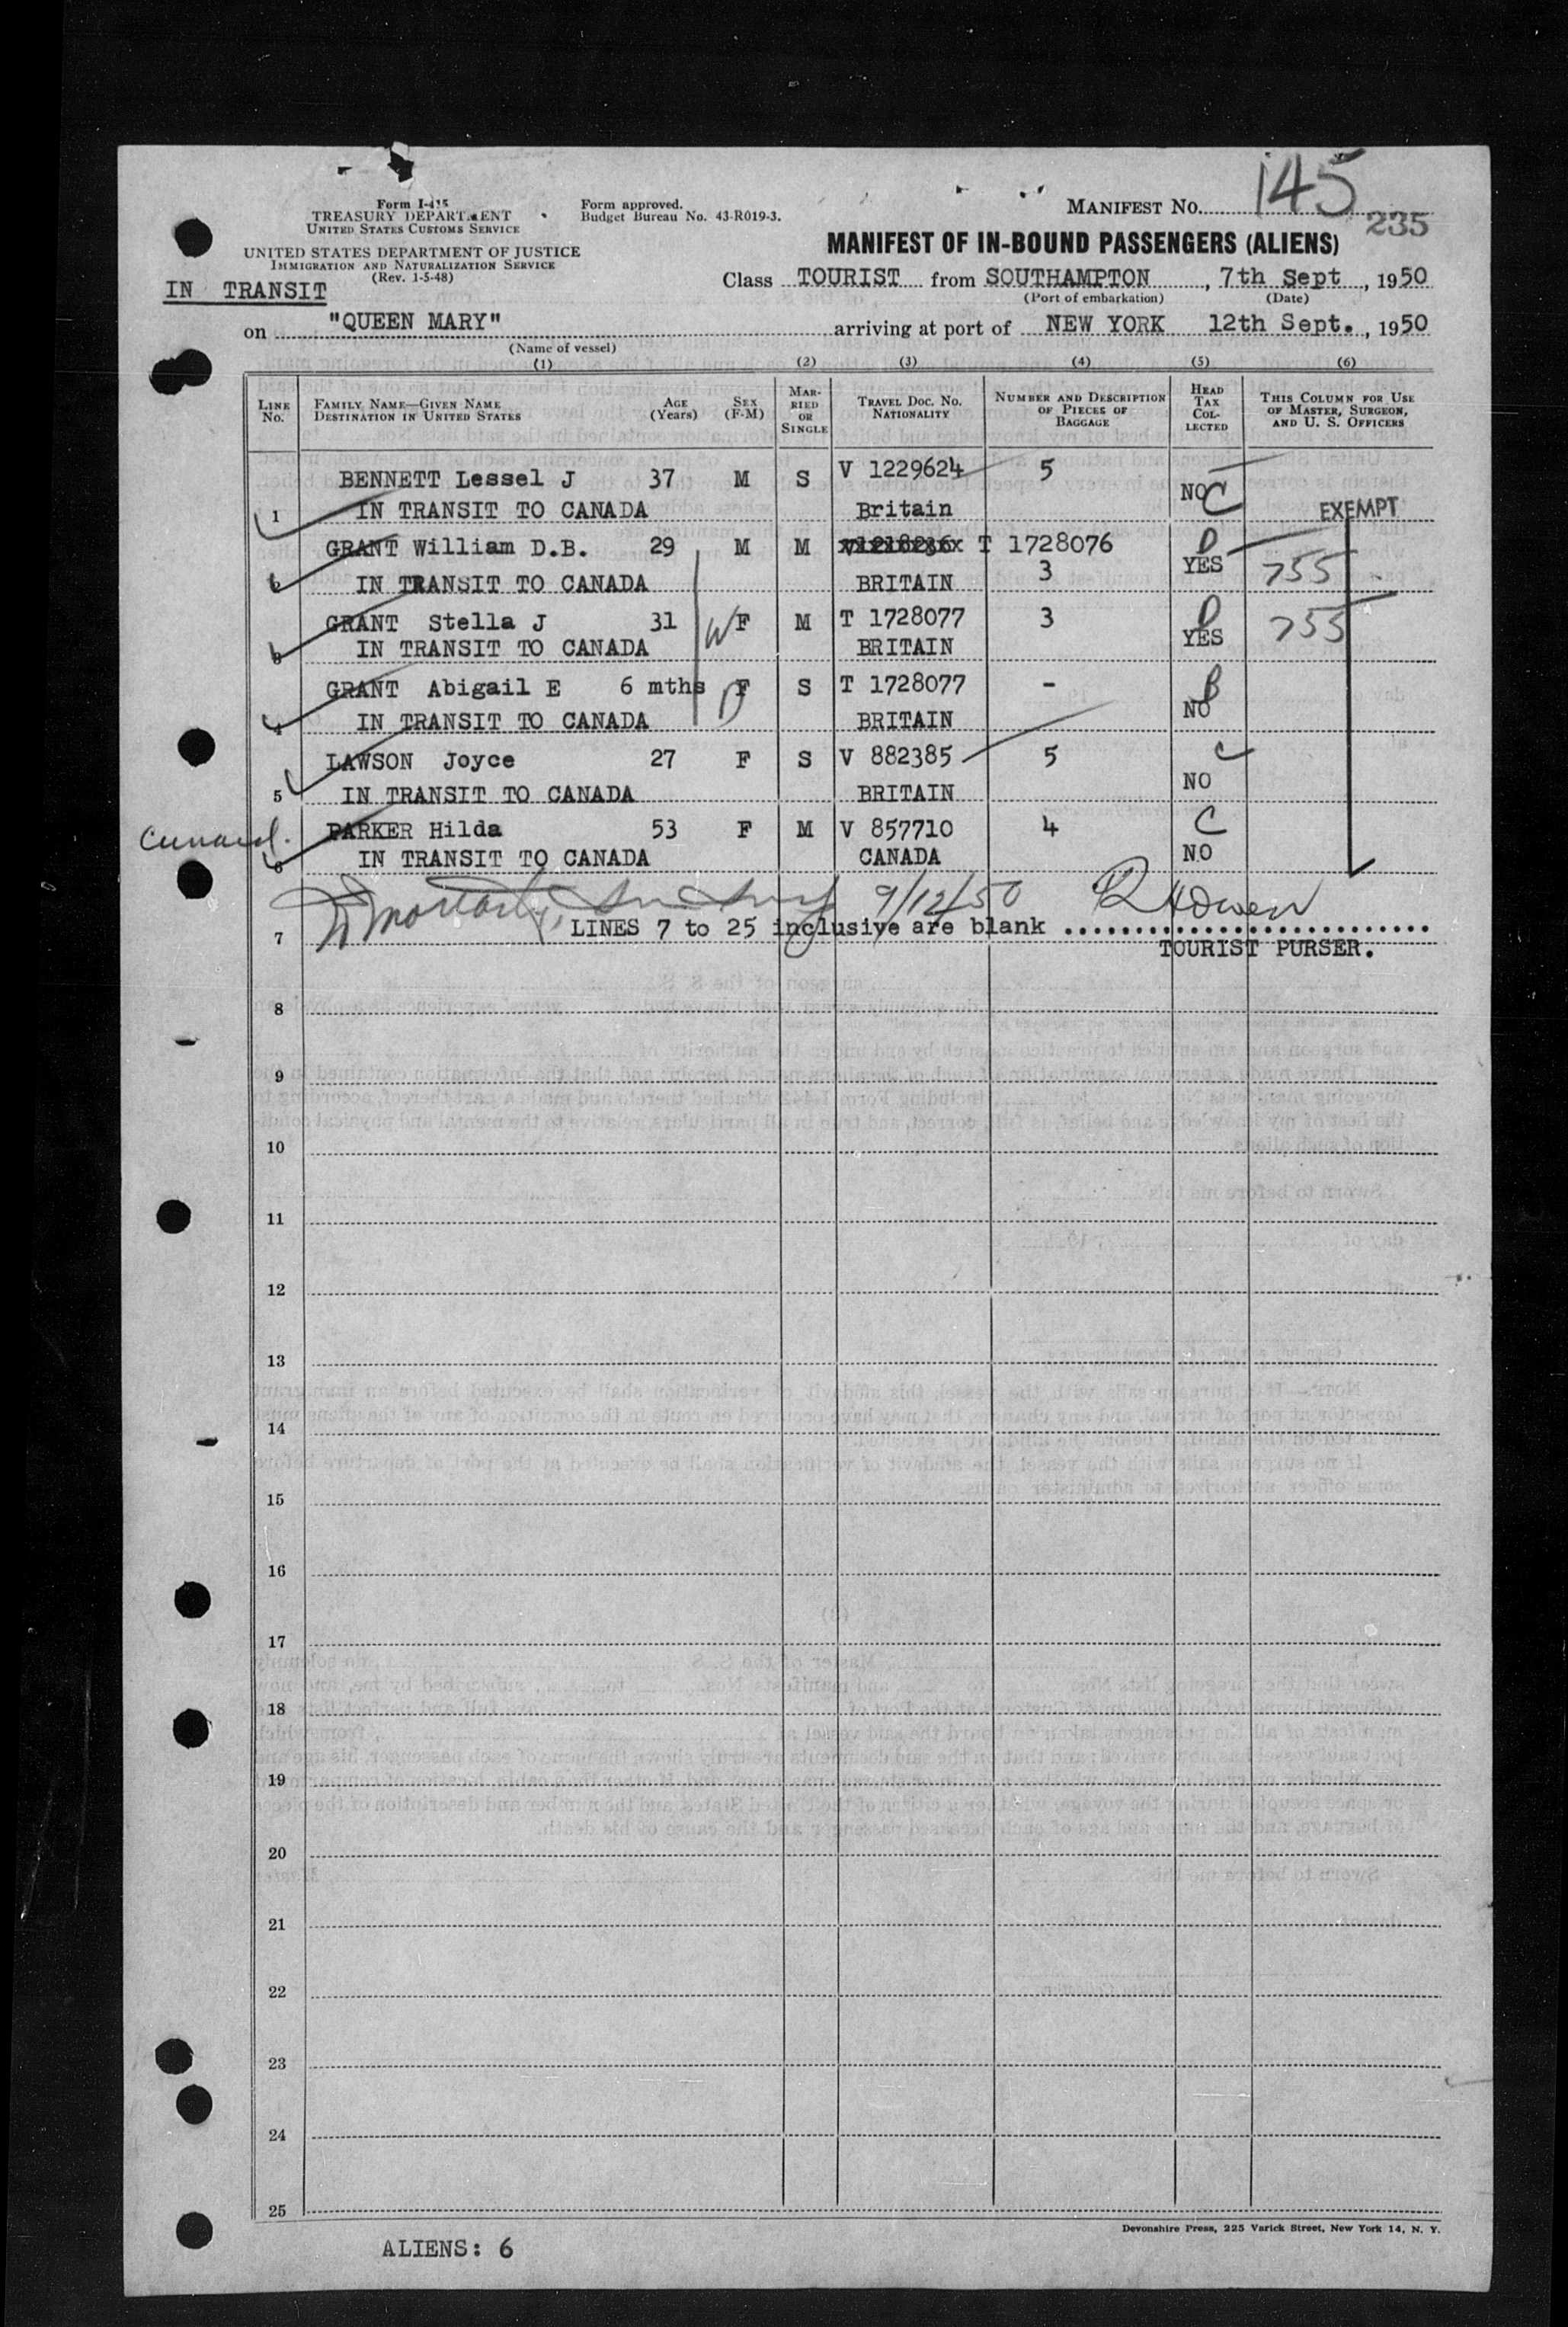 145
235
Form I-415
TREASURY DEPARTMENT
UNITED STATES CUSTOMS SERVICE
UNITED STATES DEPARTMENT OF JUSTICE
IMMIGRATION AND NATURALIZATION SERVICE
(Rev. 1-5-48)
Form approved.
Budget Bureau No. 43-R019-3.
MANIFEST NO.
MANIFEST OF IN-BOUND PASSENGERS (ALIENS)
IN TRANSIT
Class TOURIST from SOUTHAMPTON, 7th Sept, 1950
(Port of embarkation) (Date)
on "QUEEN MARY" arriving at port of NEW YORK 12th Sept., 1950
(Name of vessel)
(1) (2) (3) (4) (5) (6)
LINE No.
FAMILY NAME—GIVEN NAME
DESTINATION IN UNITED STATES
AGE (Years)
SEX (F-M)
MARRIED OR SINGLE
TRAVEL DOC. NO. NATIONALITY
NUMBER AND DESCRIPTION OF PIECES OF BAGGAGE
HEAD TAX COLLECTED
THIS COLUMN FOR USE OF MASTER, SURGEON, AND U. S. OFFICERS
BENNETT Lessel J 37 M S V 1229624 5
1 IN TRANSIT TO CANADA Britain NO C EXEMPT
GRANT William D.B. 29 M M T 1728076 D
2 IN TRANSIT TO CANADA BRITAIN 3 YES 755
GRANT Stella J 31 W F M T 1728077 3 D
3 IN TRANSIT TO CANADA BRITAIN YES 755
GRANT Abigail E 6 mths F S T 1728077 -
4 IN TRANSIT TO CANADA BRITAIN NO
LAWSON Joyce 27 F S V 882385 5 C
5 IN TRANSIT TO CANADA BRITAIN NO
Cunard. PARKER Hilda 53 F M V 857710 4 C
6 IN TRANSIT TO CANADA CANADA NO
9/12/50
7 LINES 7 to 25 inclusive are blank
TOURIST PURSER.
8
9
10
11
12
13
14
15
16
17
18
19
20
21
22
23
24
25
Devonshire Press, 225 Varick Street, New York 14, N. Y.
ALIENS: 6